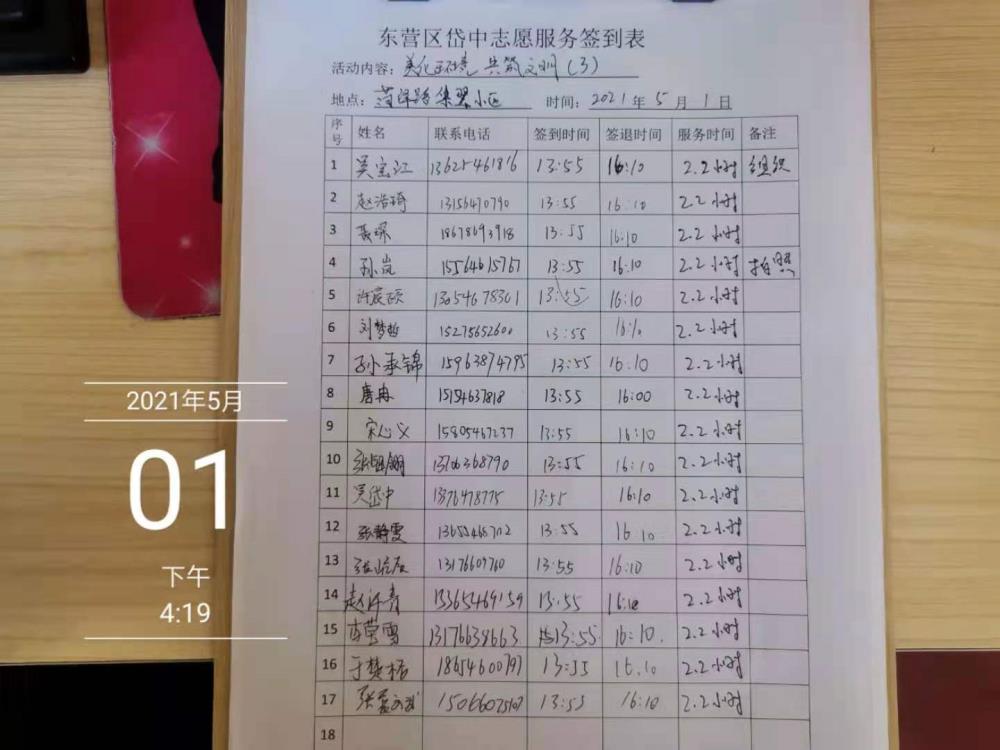 东营区岱中志愿服务签到表
活动内容: 美化环境 共筑文明(3)
地点: 小区 时间: 2021年5月1日
序号 姓名 联系电话 签到时间 签退时间 服务时间 备注
1 吴宝江 13625461816 13:55 16:10 2.2小时 组织
2 赵浩琦 13156470790 13:55 16:10 2.2小时
3 18678693918 13:55 16:10 2.2小时
4 孙岚 15564615767 13:55 16:10 2.2小时 拍照
5 13054678301 13:55 16:10 2.2小时
6 刘梦 15275652600 13:55 16:10 2.2小时
7 孙承锦 15963874795 13:55 16:10 2.2小时
8 唐冉 15154637818 13:55 16:00 2.2小时
9 宋心义 15805467237 13:55 16:10 2.2小时
10 13:55 16:10 2.2小时
11 吴岱中 13:55 16:10 2.2小时
12 张静雯 13:55 16:10 2.2小时
13 13:55 16:10 2.2小时
14 13365469159 13:55 16:10 2.2小时
15 13176638663 13:55 16:10 2.2小时
16 13:55 16:10 2.2小时
17 13:55 16:10 2.2小时
18
2021年5月
01
下午
4:19